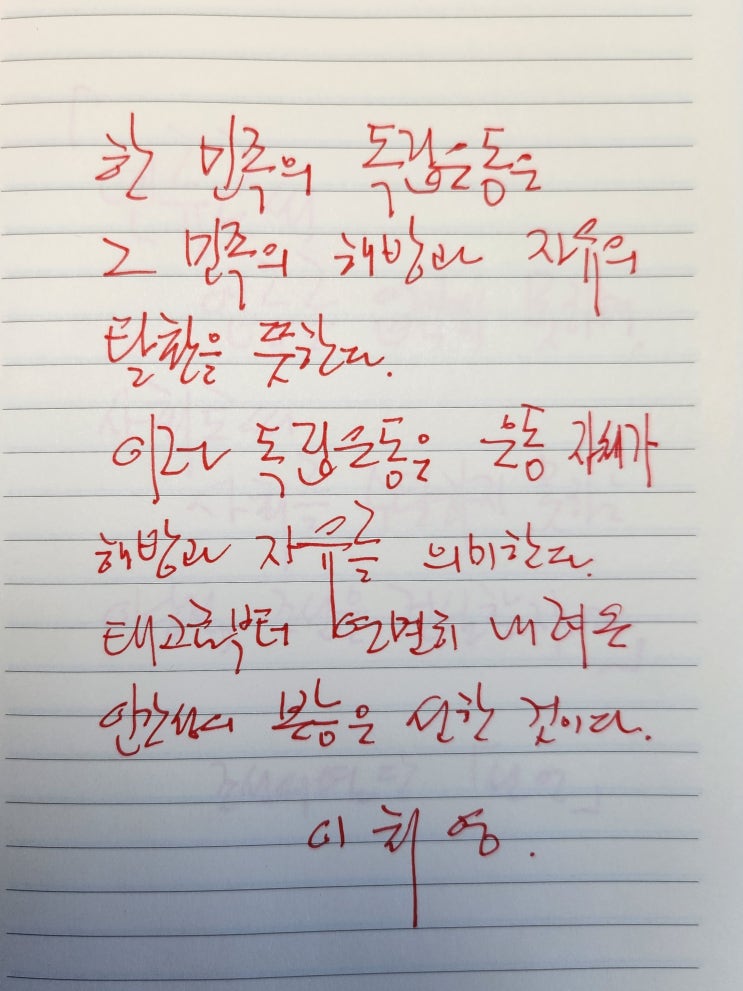 한 민족의 독립운동은
그 민족의 해방과 자유의
탈환을 뜻한다.
이런 독립운동은 운동 자체가
해방과 자유를 의미한다.
태고로부터 연면히 내려온
인간성의 본능은 선한 것이다.
이회영.